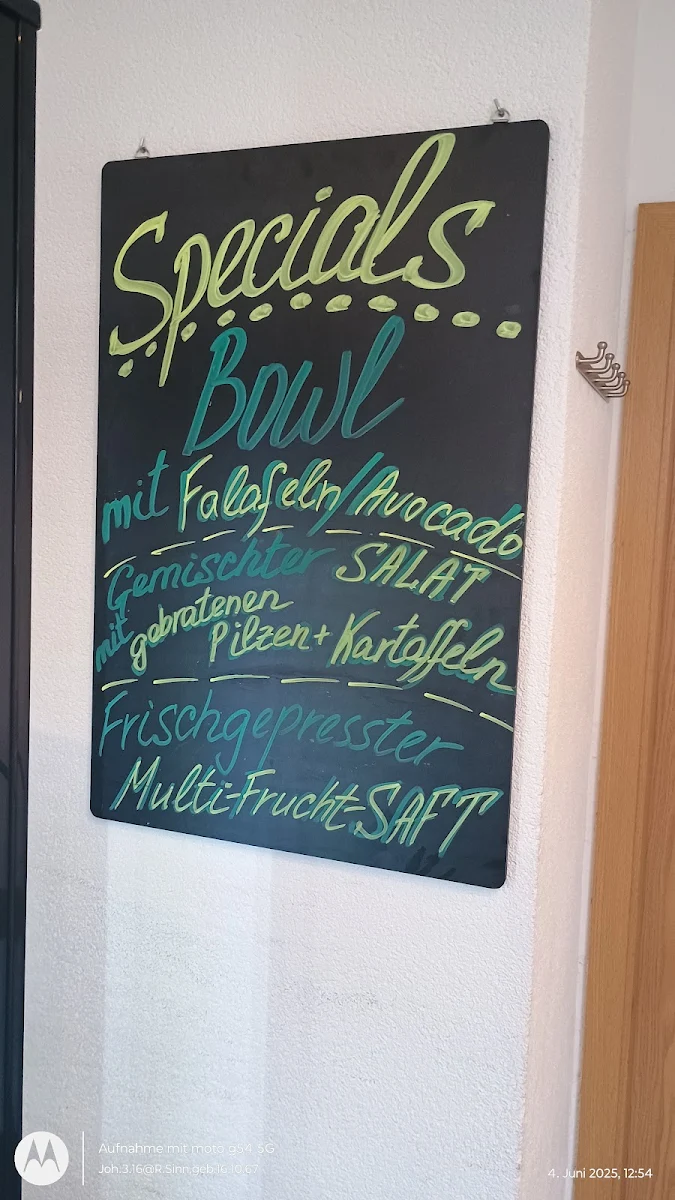 Specials
Bowl
mit Falafeln/Avocado
Gemischter SALAT
mit gebratenen
Pilzen + Kartoffeln
Frischgepresster
Multi-Frucht-SAFT
Aufnahme mit moto g54 5G
Joh.3.16@R.Sinn.geb.16.10.67
4. Juni 2025, 12:54